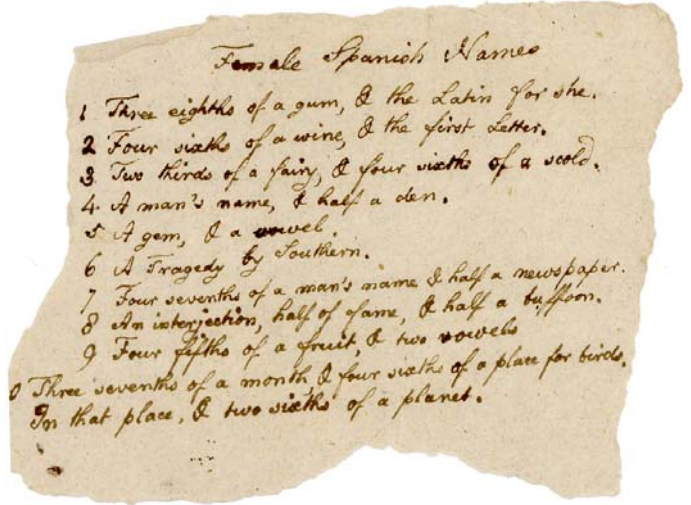 Female Spanish Names
1 Three eighths of a gum, & the Latin for she.
2 Four sixths of a wine, & the first Letter.
3 Two thirds of a fairy, & four sixths of a scold.
4 A man's name, & half a den.
5 A gem, & a vowel.
6 A Tragedy by Southern.
7 Four sevenths of a man's name & half a newspaper.
8 An interjection, half of fame, & half a buffoon.
9 Four fifths of a fruit, & two vowels
0 Three sevenths of a month & four sixths of a place for birds.
In that place, & two sixths of a planet.